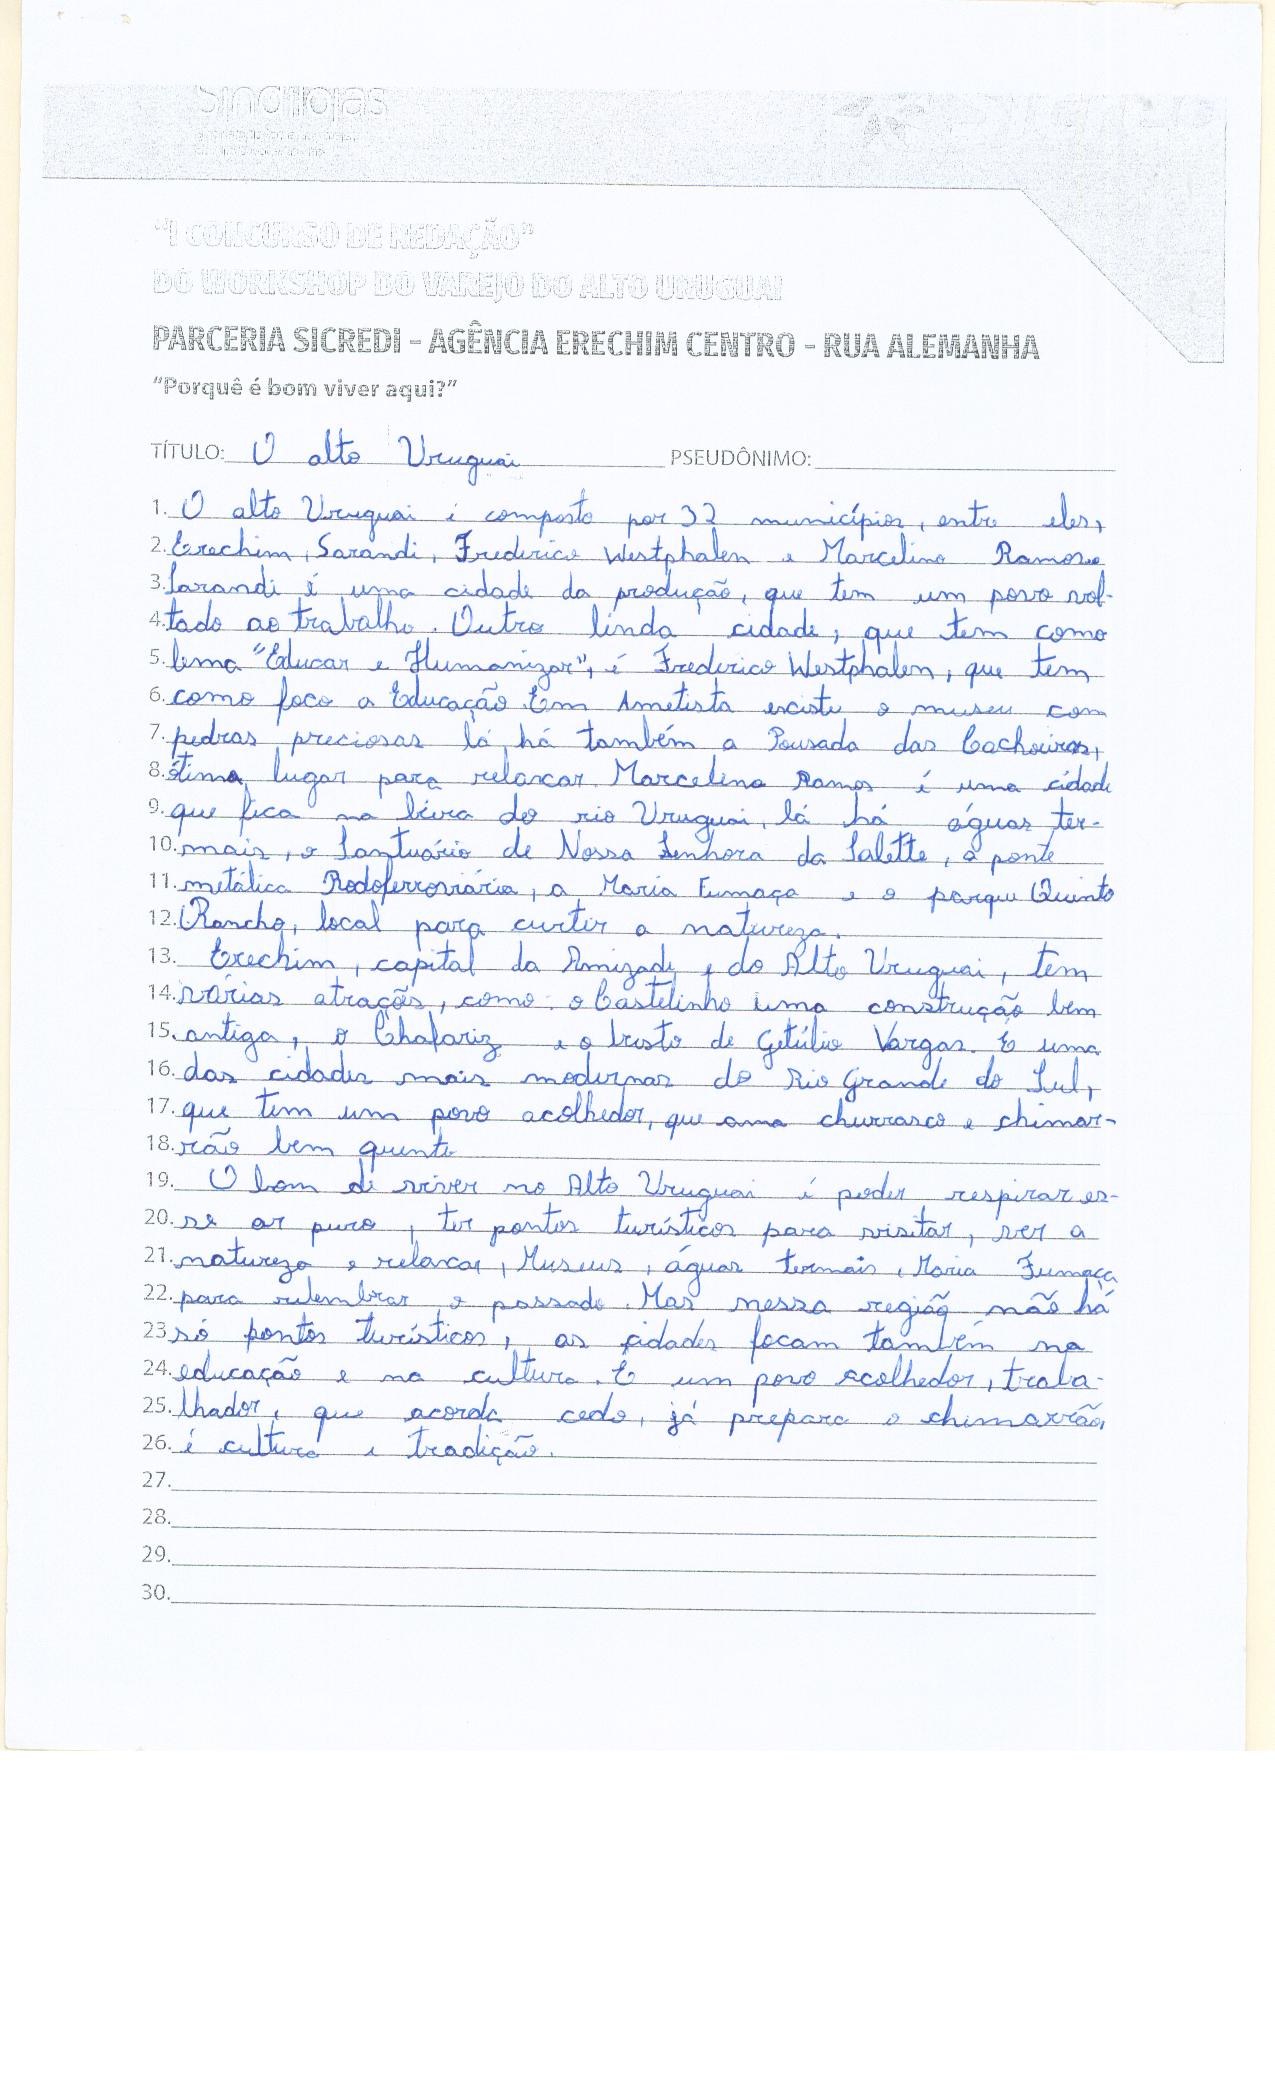 Sindilojas
"I CONCURSO DE REDAÇÃO"
DO WORKSHOP DO VAREJO DO ALTO URUGUAI
PARCERIA SICREDI - AGÊNCIA ERECHIM CENTRO - RUA ALEMANHA
"Porquê é bom viver aqui?"
TÍTULO: O alto Uruguai PSEUDÔNIMO:
1. O alto Uruguai é composto por 32 municípios, entre eles,
2. Erechim, Sarandi, Frederico Westphalen e Marcelino Ramos.
3. Sarandi é uma cidade da produção, que tem um povo vol-
4. tado ao trabalho. Outra linda cidade, que tem como
5. lema "Educar e Humanizar", é Frederico Westphalen, que tem
6. como foco a Educação. Em Ametista existe o museu com
7. pedras preciosas lá, há também a Pousada das Cachoeiras,
8. ótima lugar para relaxar. Marcelino Ramos é uma cidade
9. que fica na beira do rio Uruguai, lá há águas ter-
10. mais, o Santuário de Nossa Senhora da Salette, a ponte
11. metálica Rodoferroviária, a Maria Fumaça e o parque Quinto
12. Rancho, local para curtir a natureza.
13. Erechim, capital da Amizade, e do Alto Uruguai, tem
14. várias atrações, como: o Castelinho uma construção bem
15. antiga, o Chafariz e o busto de Getúlio Vargas. É uma
16. das cidades mais modernas do Rio Grande do Sul,
17. que tem um povo acolhedor, que ama churrasco e chimar-
18. rão bem quente
19. O bom de viver no Alto Uruguai é poder respirar es-
20. se ar puro, ter pontos turísticos para visitar, ver a
21. natureza e relaxar, Museus, águas termais, Maria Fumaça
22. para relembrar o passado. Mas nessa região não há
23 só pontos turísticos, as cidades focam também na
24. educação e na cultura. É um povo acolhedor, traba-
25. lhador, que acorda cedo, já prepara o chimarrão,
26. é cultura e tradição.
27.
28.
29.
30.